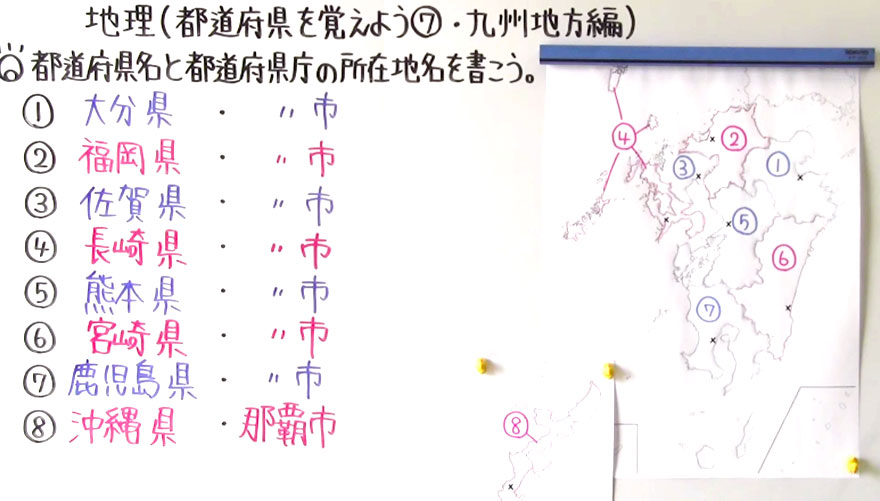 地理(都道府県を覚えよう⑦・九州地方編)
都道府県名と都道府県庁の所在地名を書こう。
① 大分県 ・ 〃 市
② 福岡県 ・ 〃 市
③ 佐賀県 ・ 〃 市
④ 長崎県 ・ 〃 市
⑤ 熊本県 ・ 〃 市
⑥ 宮崎県 ・ 〃 市
⑦ 鹿児島県 ・ 〃 市
⑧ 沖縄県 ・ 那覇市
④
②
③
①
⑤
⑥
⑦
⑧